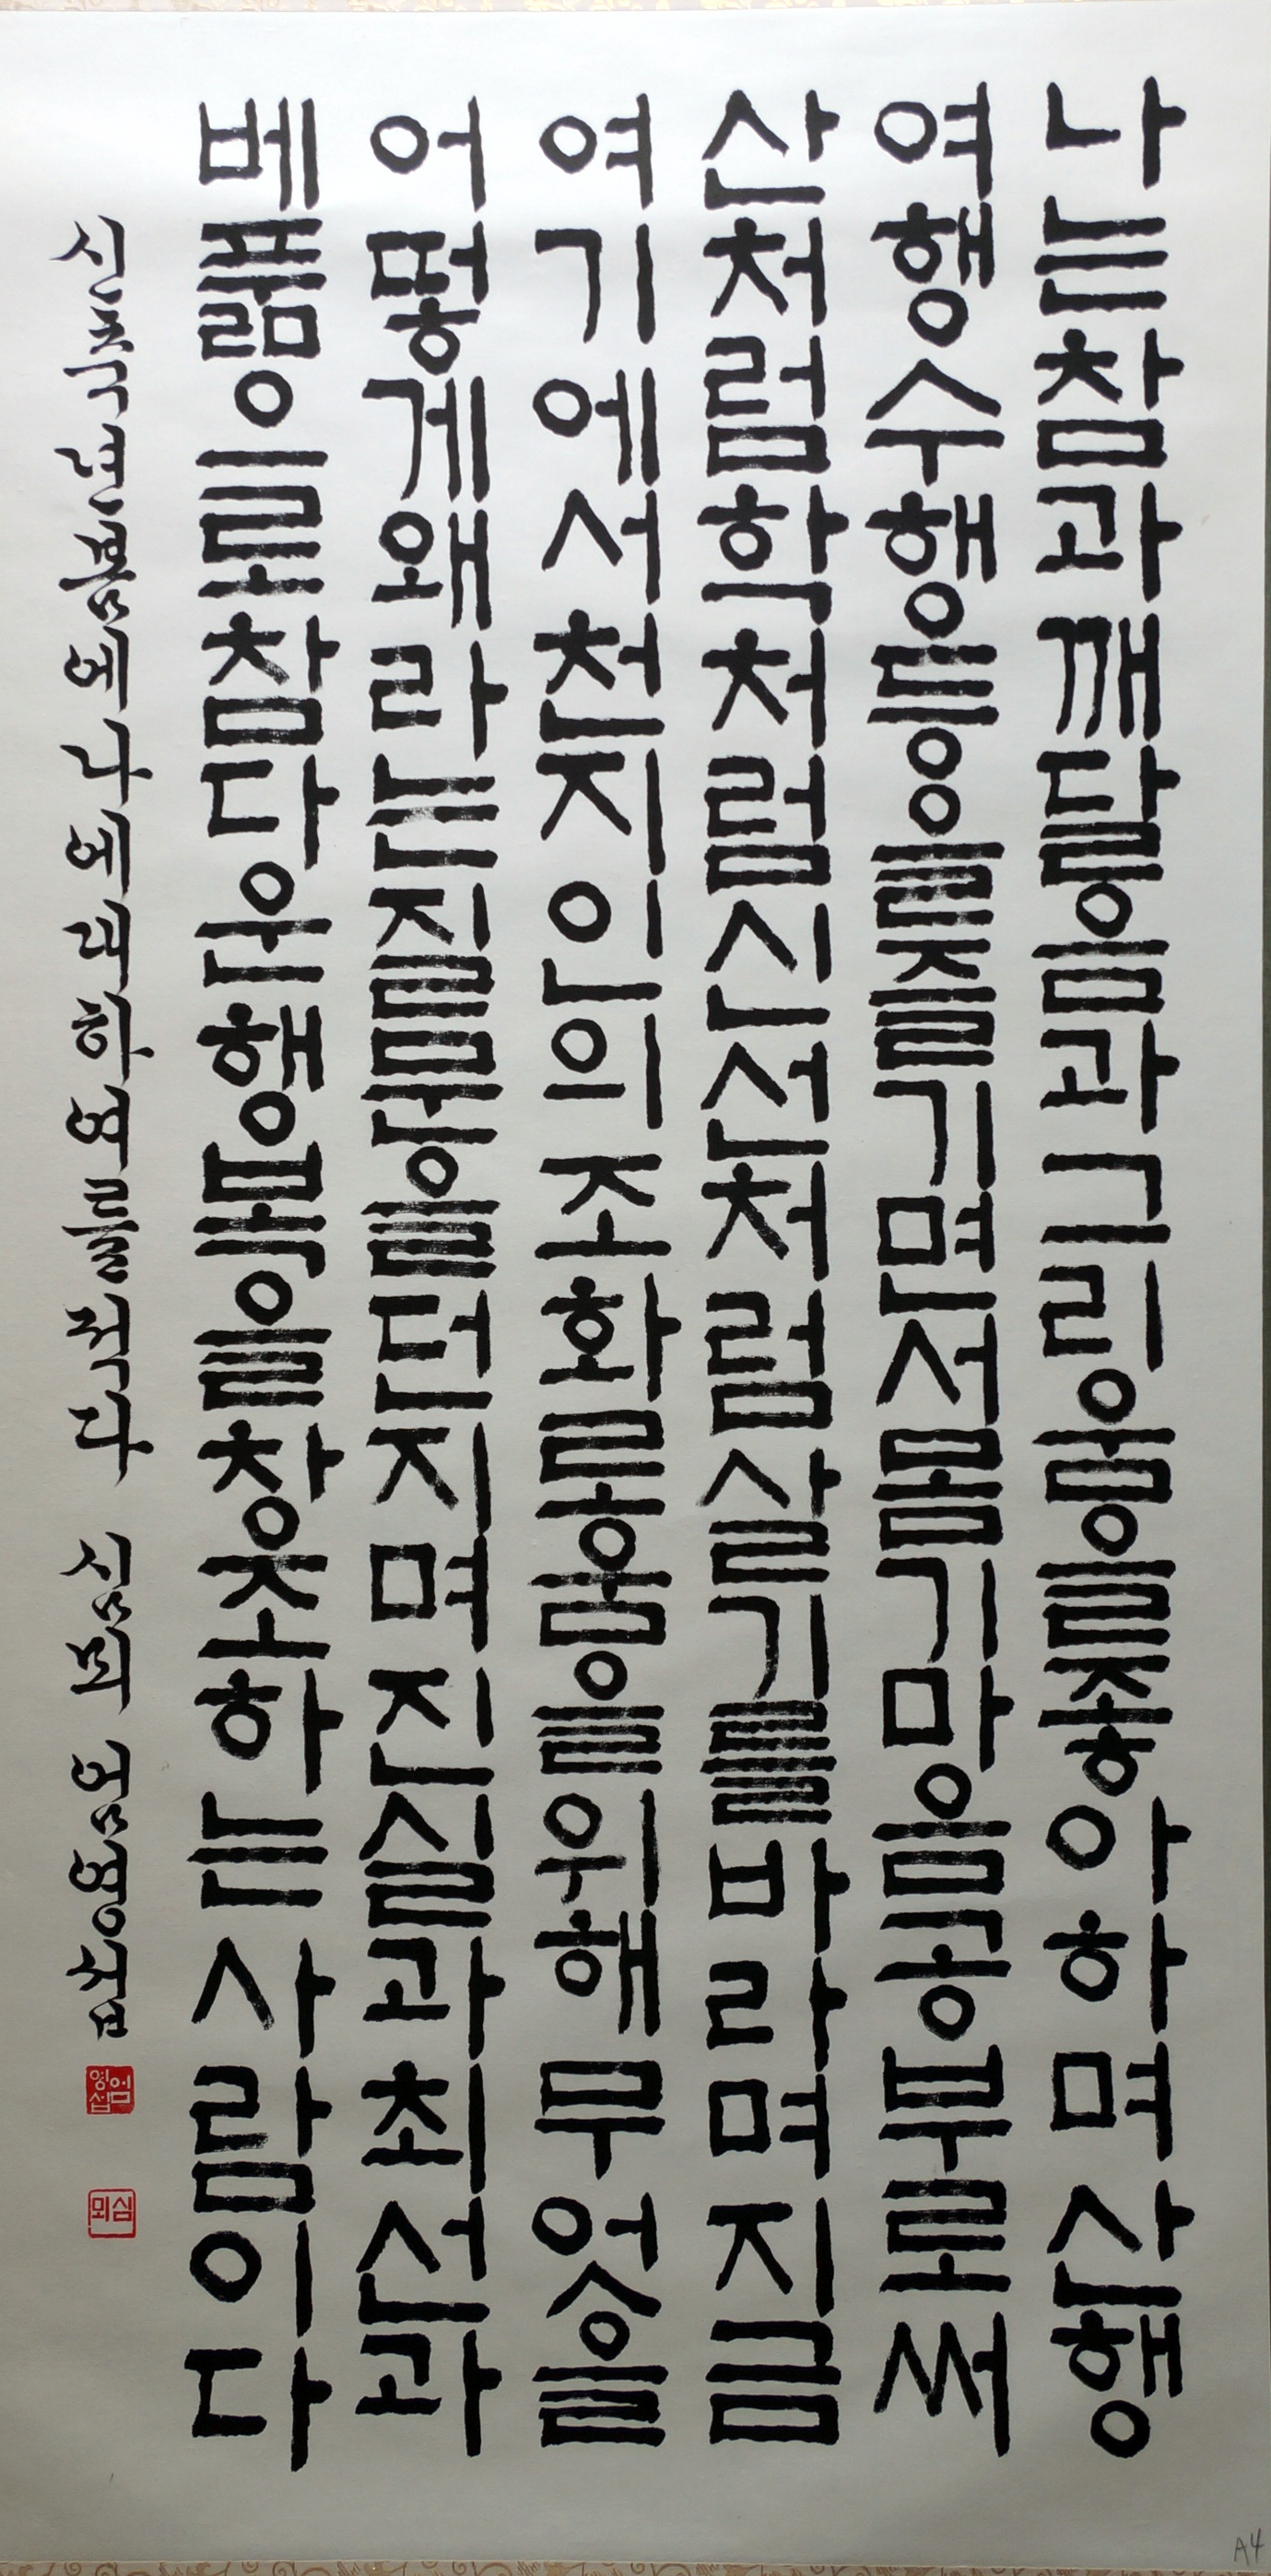 나는참과깨달음과그리움을좋아하며산행
여행수행등을즐기면서몸기마음공부로써
산처럼학처럼신선처럼살기를바라며지금
여기에서천지인의조화로움을위해무엇을
어떻게왜라는질문을던지며진실과최선과
베풂으로참다운행복을창조하는사람이다
신축년봄에나에대하여를적다 심뫼 엄영섭
엄영섭
심뫼
A4